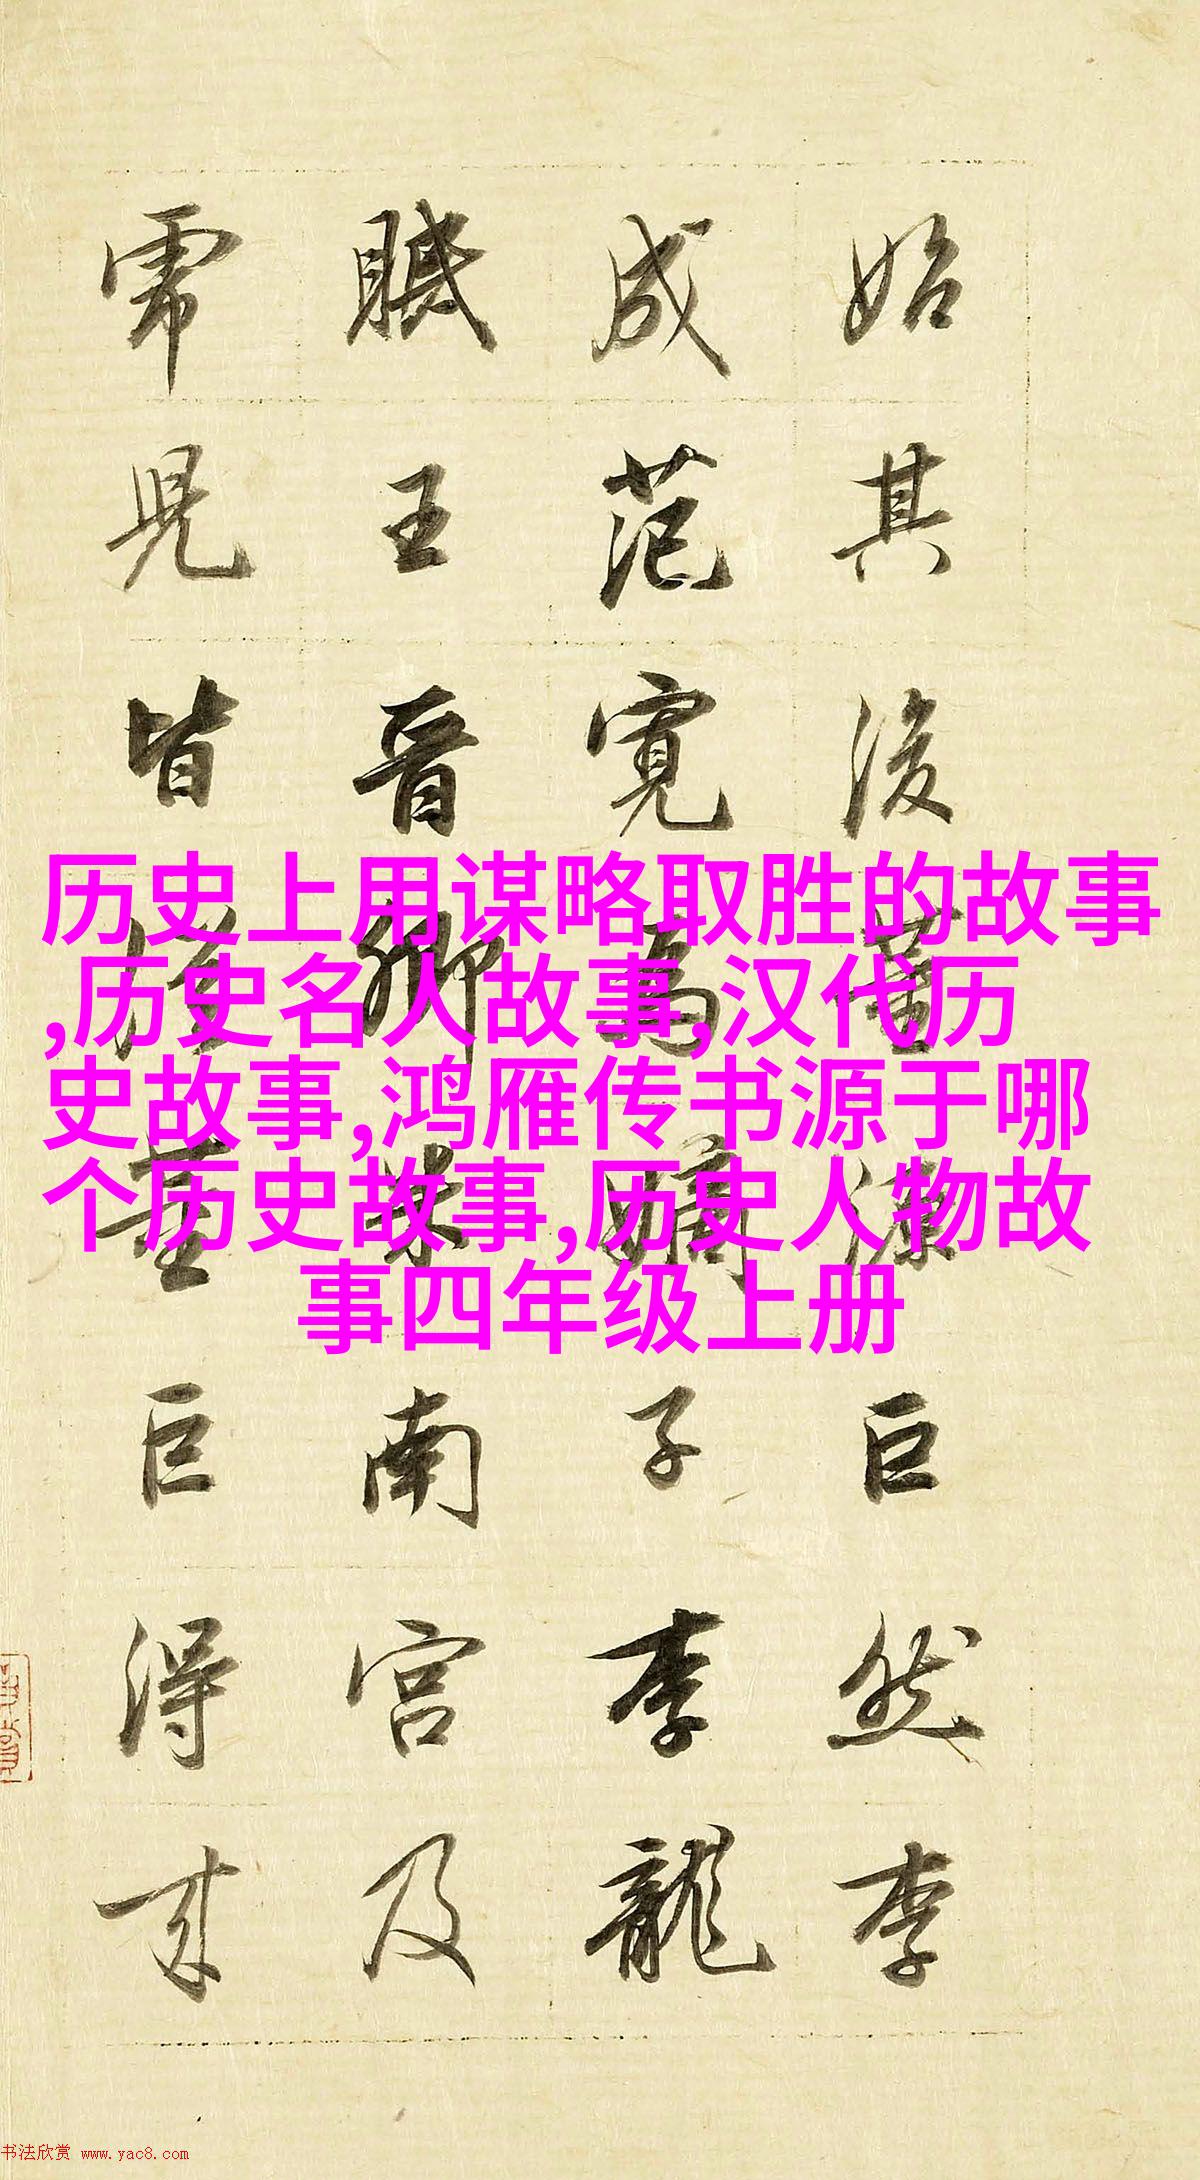 始其後董源巨然李
成范寬為嫡子李龍
眠王晉卿米南宮及
虎兒皆從董巨得来
历史上用谋略取胜的故事
,历史名人故事,汉代历
史故事,鸿雁传书源于哪
个历史故事,历史人物故
事四年级上册
书法欣赏 www.yac8.com